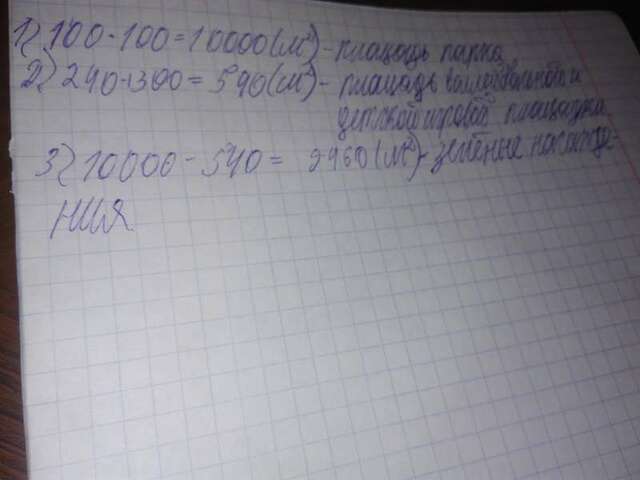 1) 100 · 100 = 10000 (м²) - площадь парка
2) 240 + 300 = 540 (м²) - площадь волейбольного и
детской игровой площадки
3) 10000 - 540 = 9460 (м²) - зелёные насажде-
ния